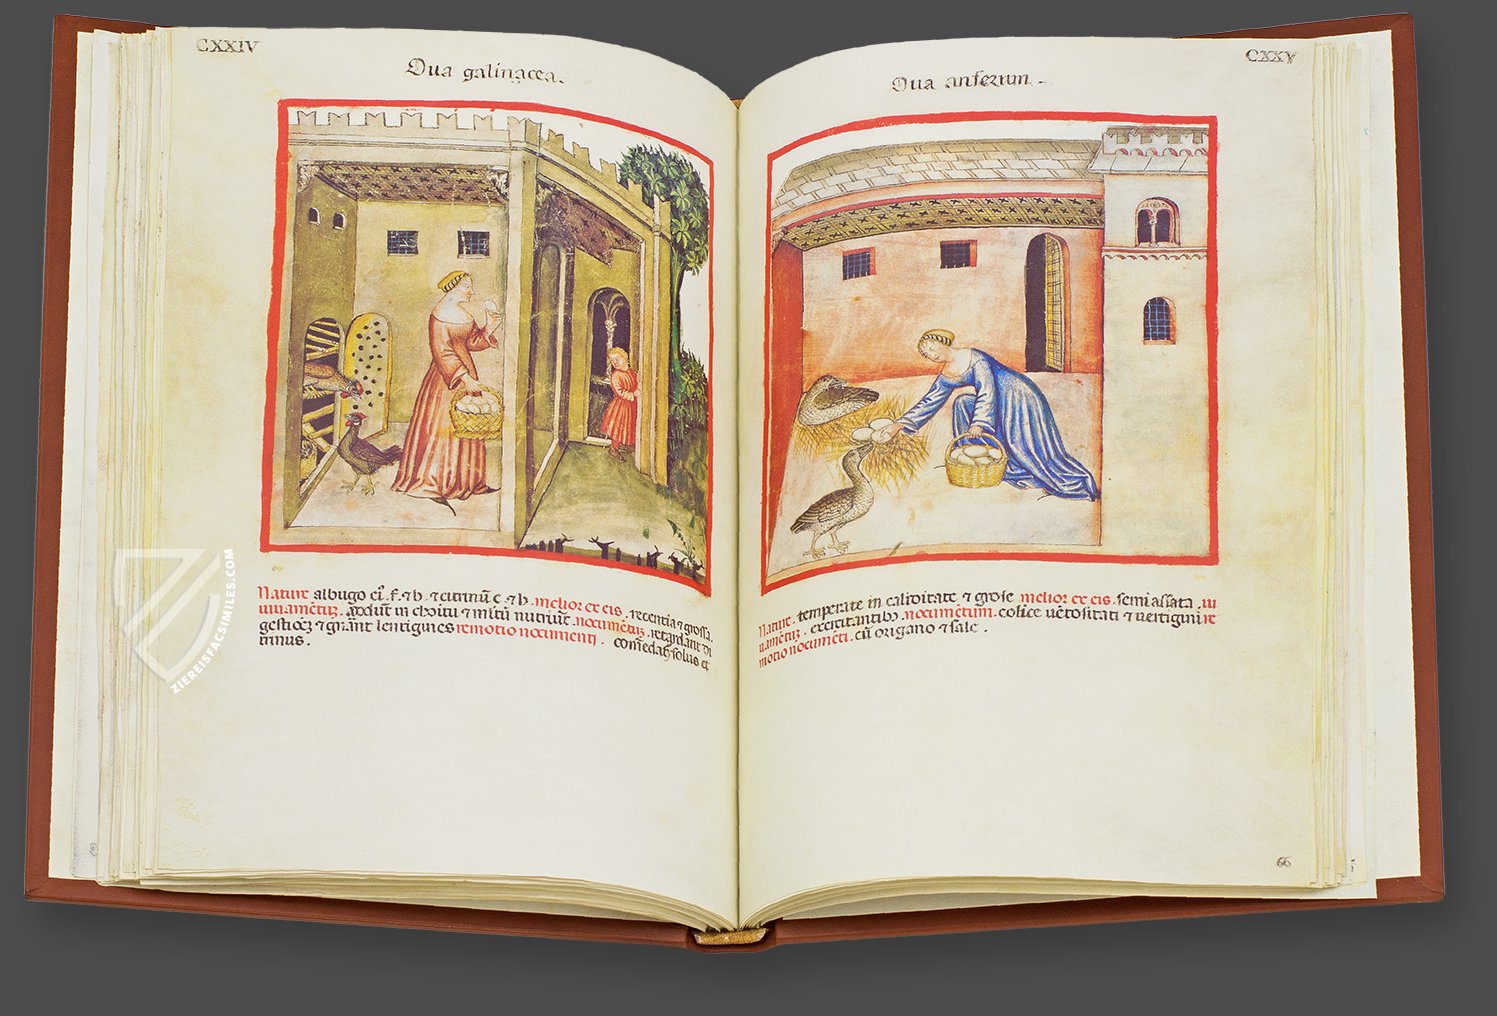 CXXIV
Oua galinacea.
Nature albugo eiꝰ. f. ⁊ h. ⁊ citrinũ c. ⁊ h. melior ex eis. recentia ⁊ grossa.
iuuamẽtuʒ. ꝓducũt in choitu ⁊ mltũ nutriũt. nocumẽtuʒ. retardant di
gestioeʒ ⁊ gnãnt lentigines remotio nocumenti. comedat᷒ solus et
minus.
CXXV
Oua anserum.
Nature. temperate in caliditate. ⁊ grose melior ex eis. semi assata. iu
uamẽtuʒ. exercitantibꝰ. nocumẽtum. colice vẽtositati ⁊ uertigini re
motio nocumẽti. cũ origano ⁊ sale.
66
ZIEREISFACSIMILES.COM